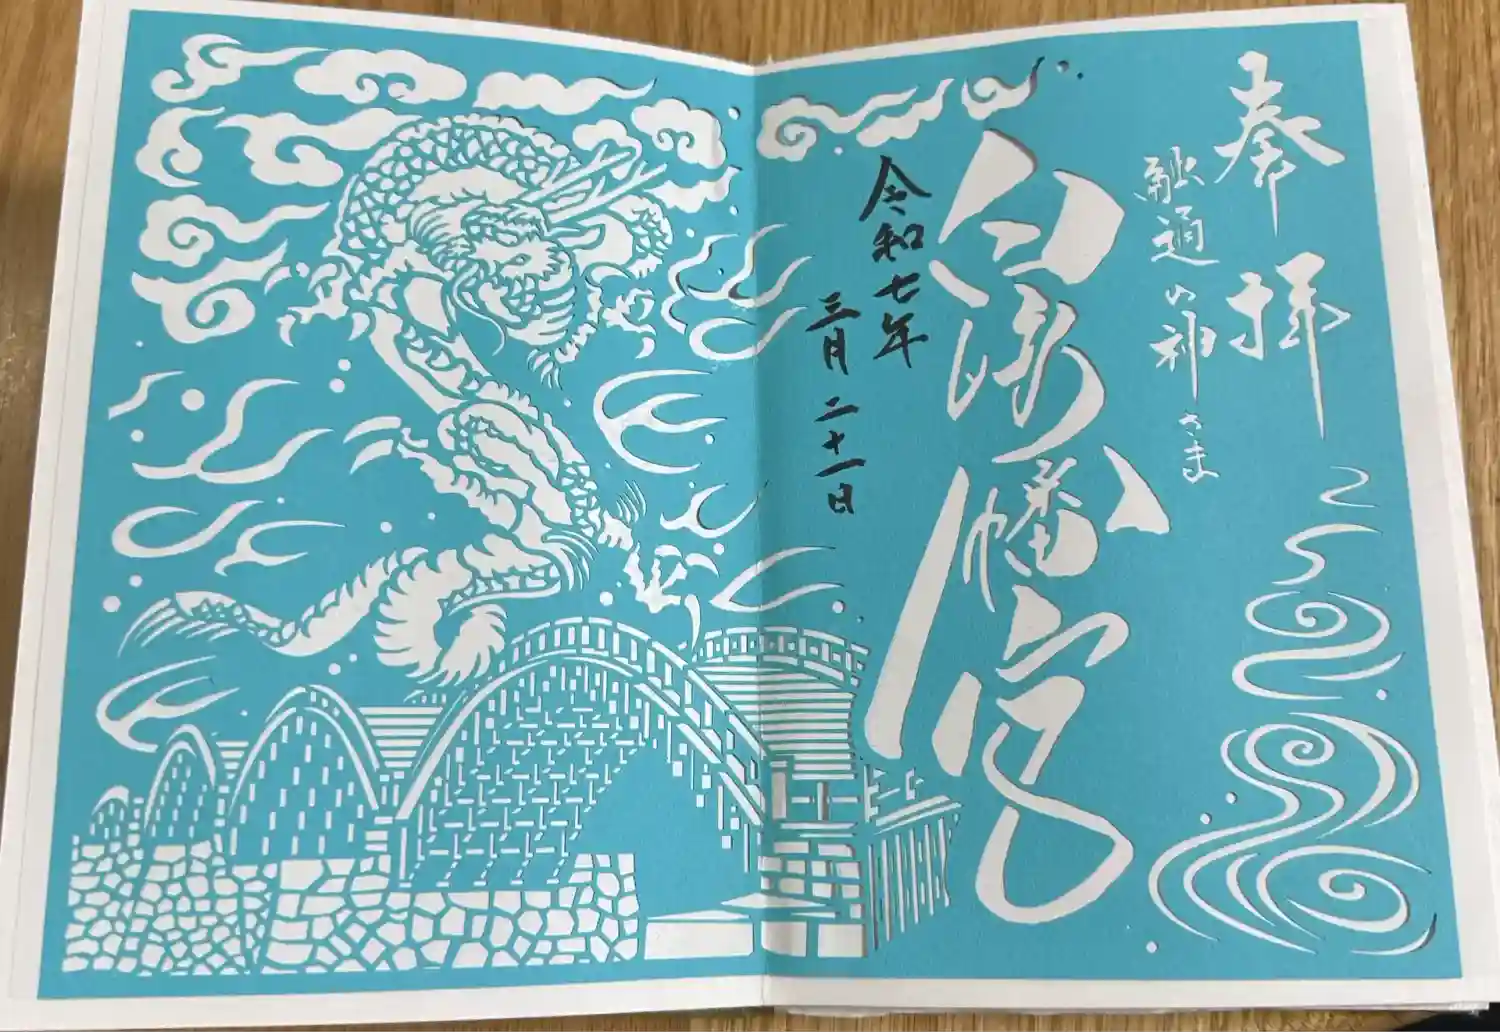 奉拝
融通の神さま
白崎八幡宮
令和七年
三月二十一日